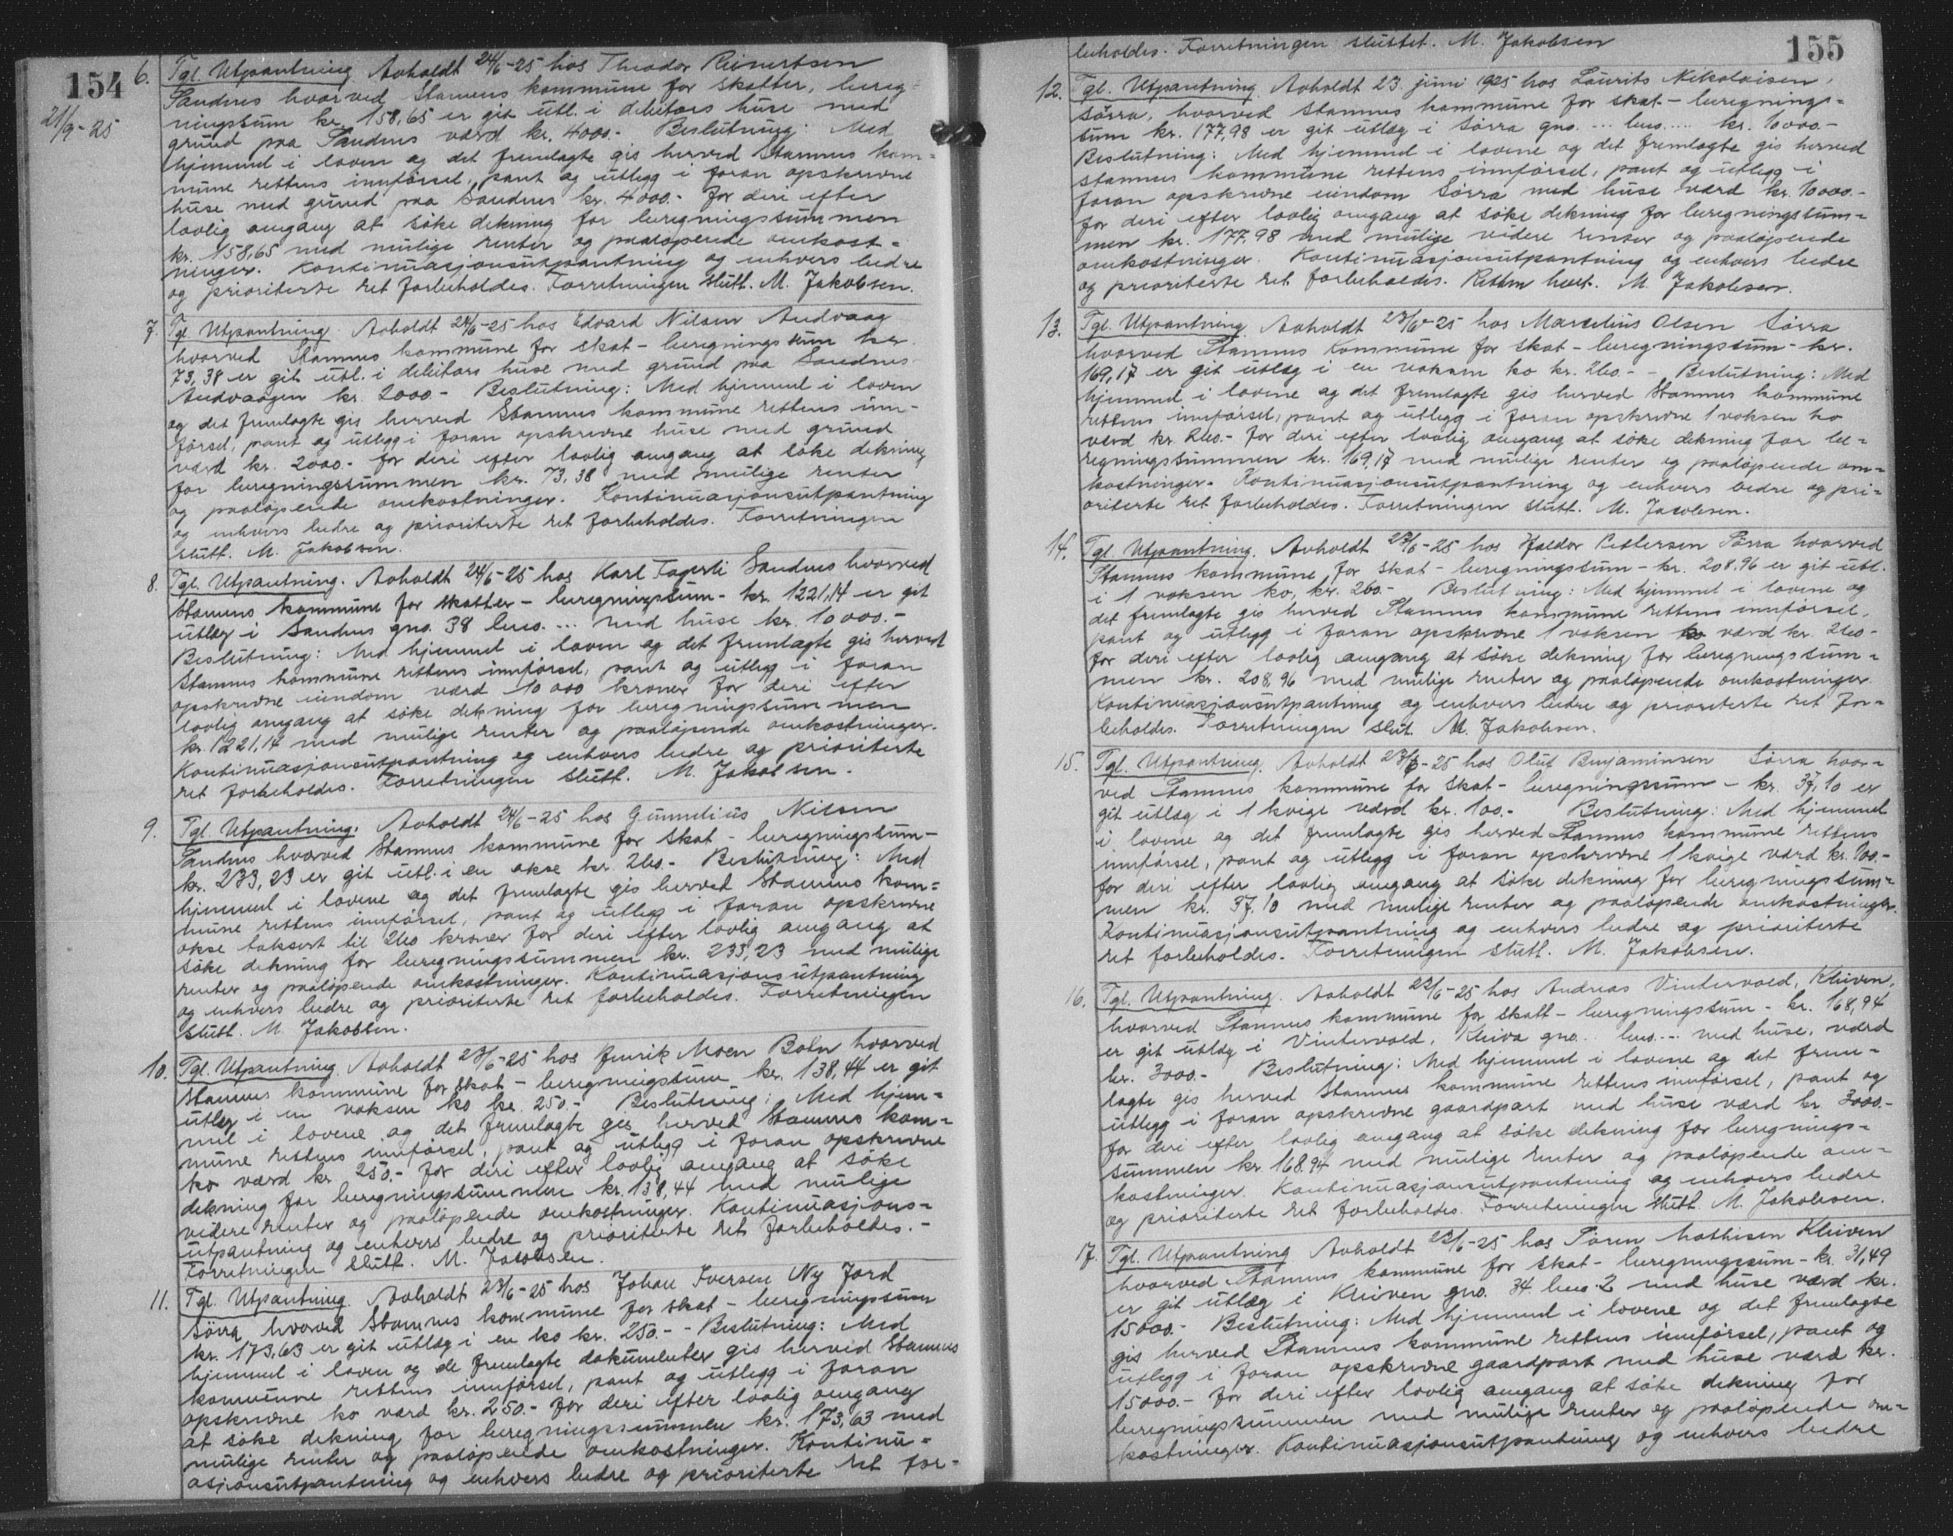 154
21/9-25
6. Tgl. Utpantning. Avholdt 24/6-25 hos Theodor Reinertsen
Sandnes hvorved Stamnes kommune for skatter, bereg-
ningssum kr. 158,65 er git utl. i debitors huse med
grund paa Sandnes værd kr. 4000.- Beslutning: Med
hjemmel i loven og det fremlagte gis herved Stamnes kom-
mune rettens innførsel, pant og utlegg i foran opskrevne
huse med grund paa Sandnes kr. 4000.- for deri efter
lovlig omgang at søke dekning for beregningssummen
kr. 158,65 med mulige renter og paaløpende omkost-
ninger. Kontinuasjonsutpantning og enhvers bedre
og prioriterte ret forbeholdes. Forretningen slutt. M. Jakobsen.
7. Tgl. Utpantning. Avholdt 24/6-25 hos Edvard Nilsen Andvaag
hvorved Stamnes kommune for skat - beregningssum kr.
73,38 er git utl. i debitors huse med grund paa Sandnes
Andvaagen kr. 2000.- Beslutning: Med hjemmel i loven
og det fremlagte gis herved Stamnes kommune rettens inn-
førsel, pant og utlegg i foran opskrevne huse med grund
værd kr. 2000.- for deri efter lovlig omgang at søke dekning
for beregningssummen kr. 73,38 med mulige renter
og paaløpende omkostninger. Kontinuasjonsutpantning
og enhvers bedre og prioriterte ret forbeholdes. Forretningen
slutt. M. Jakobsen.
8. Tgl. Utpantning. Avholdt 24/6-25 hos Karl Fagerli Sandnes hvorved
Stamnes kommune for skatter - beregningssum - kr. 1221,14 er git
utlæg i Sandnes gno. 38 bno. ... med huse kr. 10000.-
Beslutning: Med hjemmel i loven og det fremlagte gis herved
Stamnes kommune rettens innførsel, pant og utlegg i foran
opskrevne eiendom værd 10000 kroner for deri efter
lovlig omgang at søke dekning for beregningssummen
kr. 1221,14 med mulige renter og paaløpende omkostninger.
Kontinuasjonsutpantning og enhvers bedre og prioriterte
ret forbeholdes. Forretningen slutt. M. Jakobsen.
9. Tgl. Utpantning. Avholdt 24/6-25 hos Gunnelius Nilsen
Sandnes hvorved Stamnes kommune for skat - beregningssum -
kr. 233,23 er git utl. i en okse kr. 260.- Beslutning: Med
hjemmel i lovene og det fremlagte gis herved Stamnes kom-
mune rettens innførsel, pant og utlegg i foran opskrevne
okse taksert til 260 kroner for deri efter lovlig omgang at
søke dekning for beregningssummen kr. 233,23 med mulige
renter og paaløpende omkostninger. Kontinuasjonsutpantning
og enhvers bedre og prioriterte ret forbeholdes. Forretningen
slutt. M. Jakobsen.
10. Tgl. Utpantning. Avholdt 23/6-25 hos Henrik Moen Boln hvorved
Stamnes kommune for skat - beregningssum kr. 138,44 er git
utlæg i en voksen ko kr. 250.- Beslutning: Med hjem-
mel i lovene og det fremlagte gis herved Stamnes kom-
mune rettens innførsel, pant og utlegg i foran opskrevne
ko værd kr. 250.- for deri efter lovlig omgang at søke
dekning for beregningssummen kr. 138,44 med mulige
videre renter og paaløpende omkostninger. Kontinuasjons-
utpantning og enhvers bedre og prioriterte ret forbeholdes.-
Forretningen slutt. M. Jacobsen.
11. Tgl. Utpantning. Avholdt 23/6-25 hos Johan Iversen Ny Jord
Sørra hvorved Stamnes kommune for skat - beregningssum
kr. 173,63 er git utlæg i en ko kr. 250.- - Beslutning: Med
hjemmel i loven og de fremlagte dokumenter gis herved Stamnes
kommune rettens innførsel, pant og utlegg i foran
opskrevne ko værd kr. 250.- for deri efter lovlig omgang
at søke dekning for beregningssummen kr. 173,63 med
mulige renter og paaløpende omkostninger. Kontinu-
asjonsutpantning og enhvers bedre og prioriterte ret for-
155
beholdes. Forretningen sluttet. M. Jakobsen
12. Tgl. Utpantning. Avholdt 23. juni 1925 hos Laurits Nikolaisen,
Sørra, hvorved Stamnes kommune for skat - beregnings-
sum kr. 177,98 er git utlæg i Sørra gno. ... bno. .... kr. 10000.-
Beslutning: Med hjemmel i lovene og det fremlagte gis herved
Stamnes kommune rettens innførsel, pant og utlegg i
foran opskrevne eiendom Sørra med huse værd kr. 10000.-
for deri efter lovlig omgang at søke dekning for beregningssum-
men kr. 177.98 med mulige videre renter og paaløpende
omkostninger. Kontinuasjonsutpantning og enhvers bedre
og prioriterte ret forbeholdes. Retten hævt. M. Jakobsen.
13. Tgl. Utpantning. Avholdt 23/6-25 hos Marselius Olsen Sørra
hvorved Stamnes Kommune for skat - beregningssum - kr.
169,17 er git utlæg i en voksen ko kr. 260.- - Beslutning: Med
hjemmel i lovene og det fremlagte gis herved Stamnes kommune
rettens innførsel, pant og utlegg i foran opskrevne 1 voksen ko
værd kr. 260.- for deri efter lovlig omgang at søke dekning for be-
regningssummen kr. 169,17 med mulige renter og paaløpende om-
kostninger. Kontinuasjonsutpantning og enhvers bedre og pri-
oriterte ret forbeholdes. Forretningen slutt. M. Jacobsen.
14. Tgl. Utpantning. Avholdt 23/6-25 hos Haldor Pettersen Sørra hvorved
Stamnes kommune for skat - beregningssum - kr. 208.96 er git utl.
i 1 voksen ko, kr. 260.- Beslutning: Med hjemmel i lovene og
det fremlagte gis herved Stamnes kommune rettens innførsel,
pant og utlegg i foran opskrevne 1 voksen ko værd kr. 260-
for deri efter lovlig omgang at søke dekning for beregningssum-
men kr. 208,96 med mulige renter og paaløpende omkostninger.
Kontinuasjonsutpantning og enhvers bedre og prioriterte ret for-
beholdes. Forretningen slut. M. Jakobsen.
15. Tgl. Utpantning. Avholdt 23/6-25 hos Oluf Benjaminsen Sørra hvor-
ved Stamnes kommune for skat - beregningssum - kr. 37,10 er
git utlæg i 1 kvige værd kr. 100.- Beslutning: Med hjemmel
i lovene og det fremlagte gis herved Stamnes kommune rettens
innførsel, pant og utlegg i foran opskrevne 1 kvige værd kr. 100.-
for deri efter lovlig omgang at søke dekning for beregningssum-
men kr. 37.10 med mulige renter og paaløpende omkostninger.
Kontinuasjonsutpantning og enhvers bedre og prioriterte
ret forbeholdes. Forretningen slutt. M. Jakobsen.
16. Tgl. Utpantning. Avholdt 22/6-25 hos Andreas Vintervold, Kleiven,
hvorved Stamnes kommune for skatt - beregningssum - kr. 168,94
er git utlæg i Vintervold, Kleiva gno. .. bno. ... med huse, værd
kr. 3000.- Beslutning: Med hjemmel i lovene og det frem-
lagte gis herved Stamnes kommune rettens innførsel, pant og
utlegg i foran opskrevne gaardpart med huse værd kr. 3000.-
for deri efter lovlig omgang at søke dekning for beregnings-
summen kr. 168.94 med mulige renter og paaløpende om-
kostninger. Kontinuasjonsutpantning og enhvers bedre
og prioriterte ret forbeholdes. Forretningen slutt. M. Jakobsen.
17. Tgl. Utpantning Avholdt 22/6-25 hos Søren Mathisen Kleiven
hvorved Stamnes kommune for skat - beregningssum - kr. 31,49
er git utlæg i Kleiven gno. 34 bno 2 med huse værd kr.
15000.- Beslutning: Med hjemmel i lovene og det fremlagte
gis herved Stamnes kommune rettens innførsel, pant og
utlegg i foran opskrevne gaardpart med huse værd kr.
15000.- for deri efter lovlig omgang at søke dekning for
beregningssummen med mulige renter og paaløpende om-
kostninger. Kontinuasjonsutpantning og enhvers bedre